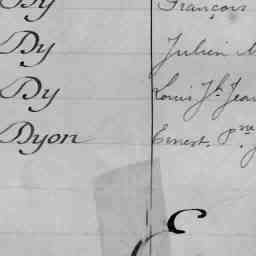 Dy François
Dy Julien
Dy Louis Jh Jean
Dyon Ernest Pre
C